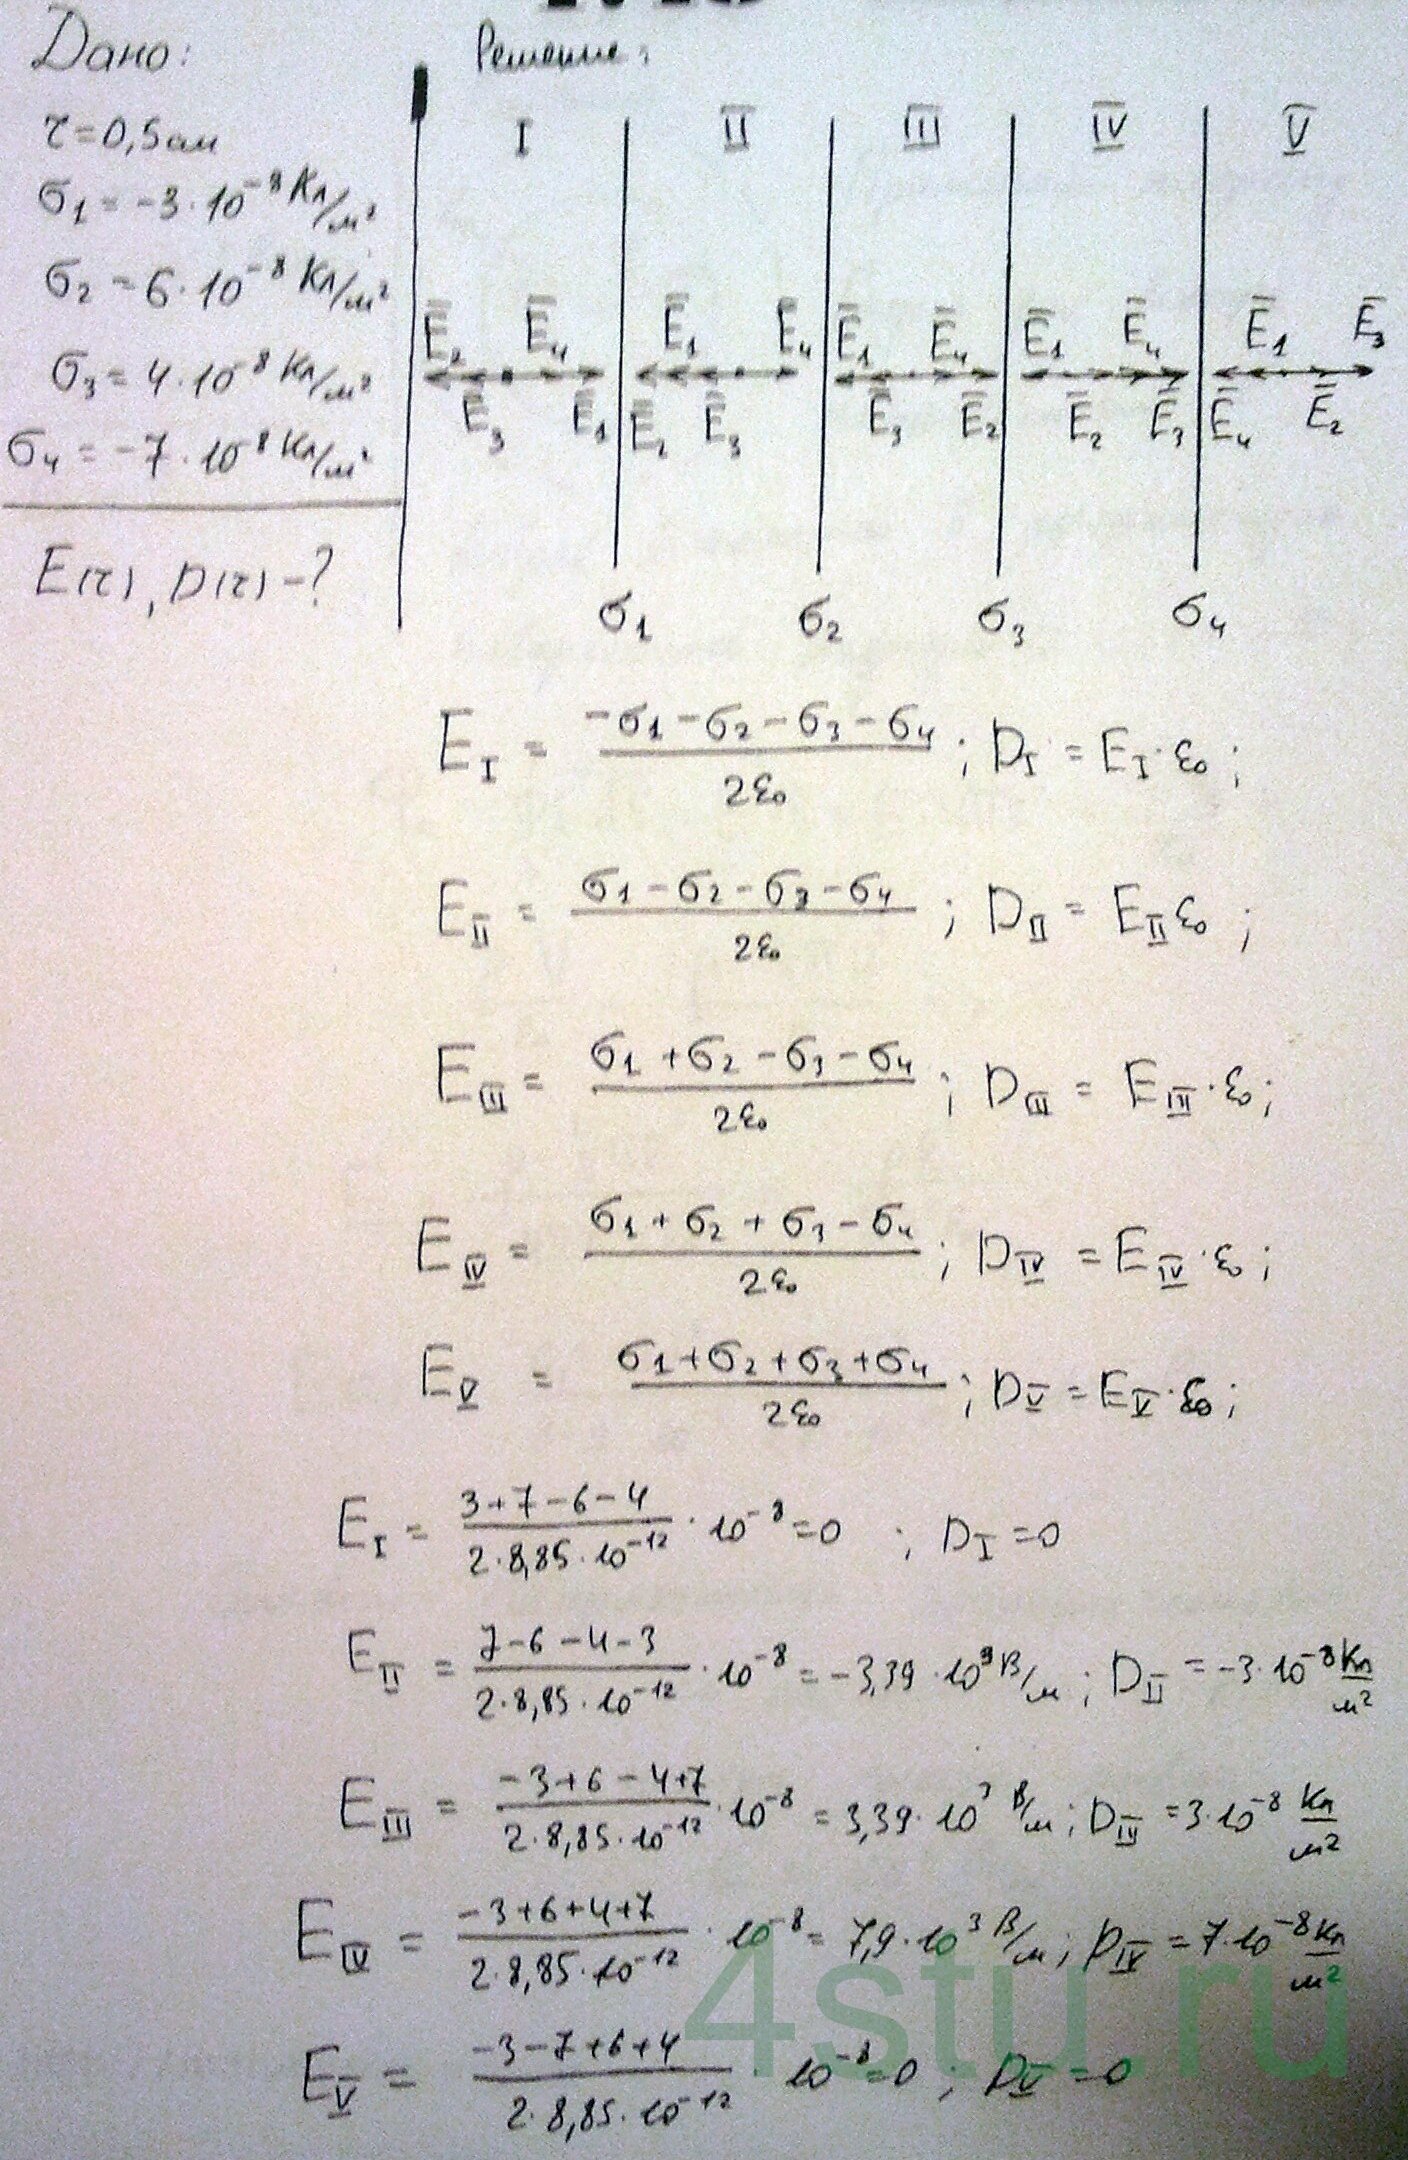 Дано: Решение:
τ=0,5см
σ1=-3·10^-8 Кл/м²
σ2=6·10^-8 Кл/м²
σ3=4·10^-8 Кл/м²
σ4=-7·10^-8 Кл/м²
E(τ), D(τ)-?
I II III IV V
E̅2 E̅4 E̅1 E̅4 E̅1 E̅4 E̅1 E̅4 E̅1 E̅3
E̅3 E̅1 E̅2 E̅3 E̅3 E̅2 E̅2 E̅3 E̅4 E̅2
σ1 σ2 σ3 σ4
E_I = (-σ1-σ2-σ3-σ4)/(2ε0); D_I=E_I·ε0;
E_II = (σ1-σ2-σ3-σ4)/(2ε0); D_II=E_II ε0;
E_III = (σ1+σ2-σ3-σ4)/(2ε0); D_III=E_III·ε0;
E_IV = (σ1+σ2+σ3-σ4)/(2ε0); D_IV=E_IV·ε0;
E_V = (σ1+σ2+σ3+σ4)/(2ε0); D_V=E_V·ε0;
E_I = (3+7-6-4)/(2·8,85·10^-12)·10^-8=0; D_I=0
E_II = (7-6-4-3)/(2·8,85·10^-12)·10^-8=-3,39·10^3 В/м; D_II=-3·10^-8 Кл/м²
E_III = (-3+6-4+7)/(2·8,85·10^-12)·10^-8=3,39·10^3 В/м; D_III=3·10^-8 Кл/м²
E_IV = (-3+6+4+7)/(2·8,85·10^-12)·10^-8=7,9·10^3 В/м; D_IV=7·10^-8 Кл/м²
E_V = (-3-7+6+4)/(2·8,85·10^-12)·10^-8=0; D_V=0
4stu.ru